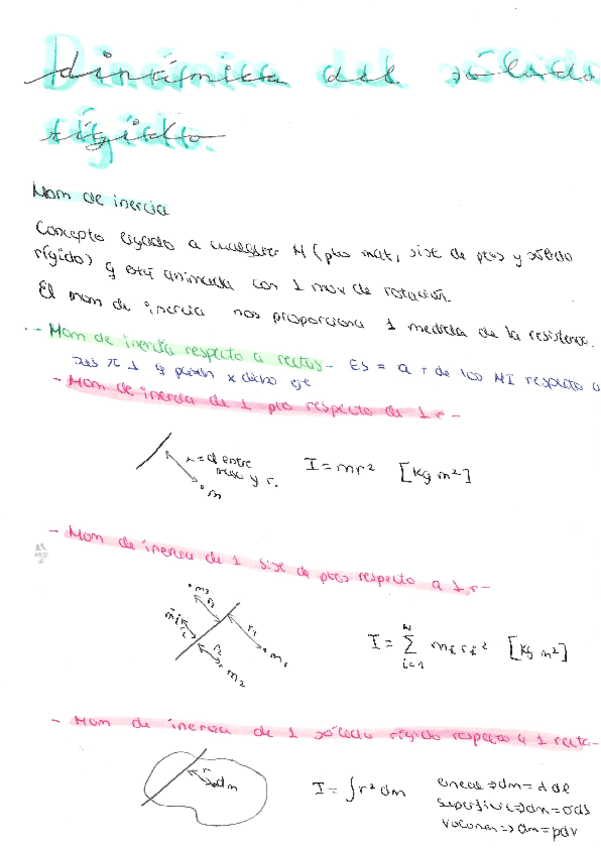 Dinámica del sólido
rígido.
Mom de inercia
Concepto ligado a cualquier M (pto mat, sist de ptos y sólido
rígido) q está animada con 1 mov de rotación.
El mom de inercia nos proporciona 1 medida de la resistenc.
- Mom de inercia respecto a rectas - ES = a r de los MI respecto a
2 π ⊥ q pasen x dicho eje
- Mom de inercia de 1 pto respecto de 1 r -
r = d entre
masa y r.
m
I = mr² [Kg m²]
- Mom de inercia de 1 sist de ptos respecto a 1 r -
m3
r3
mi
ri
r1
m1
r2
m2
I = N∑i=1 mi ri² [Kg m²]
- Mom de inercia de 1 sólido rígido respecto a 1 recta -
r
dm
I = ∫r² dm
lineal ⇒ dm = λ dl
superficie ⇒ dm = σ ds
volumen ⇒ dm = ρdv